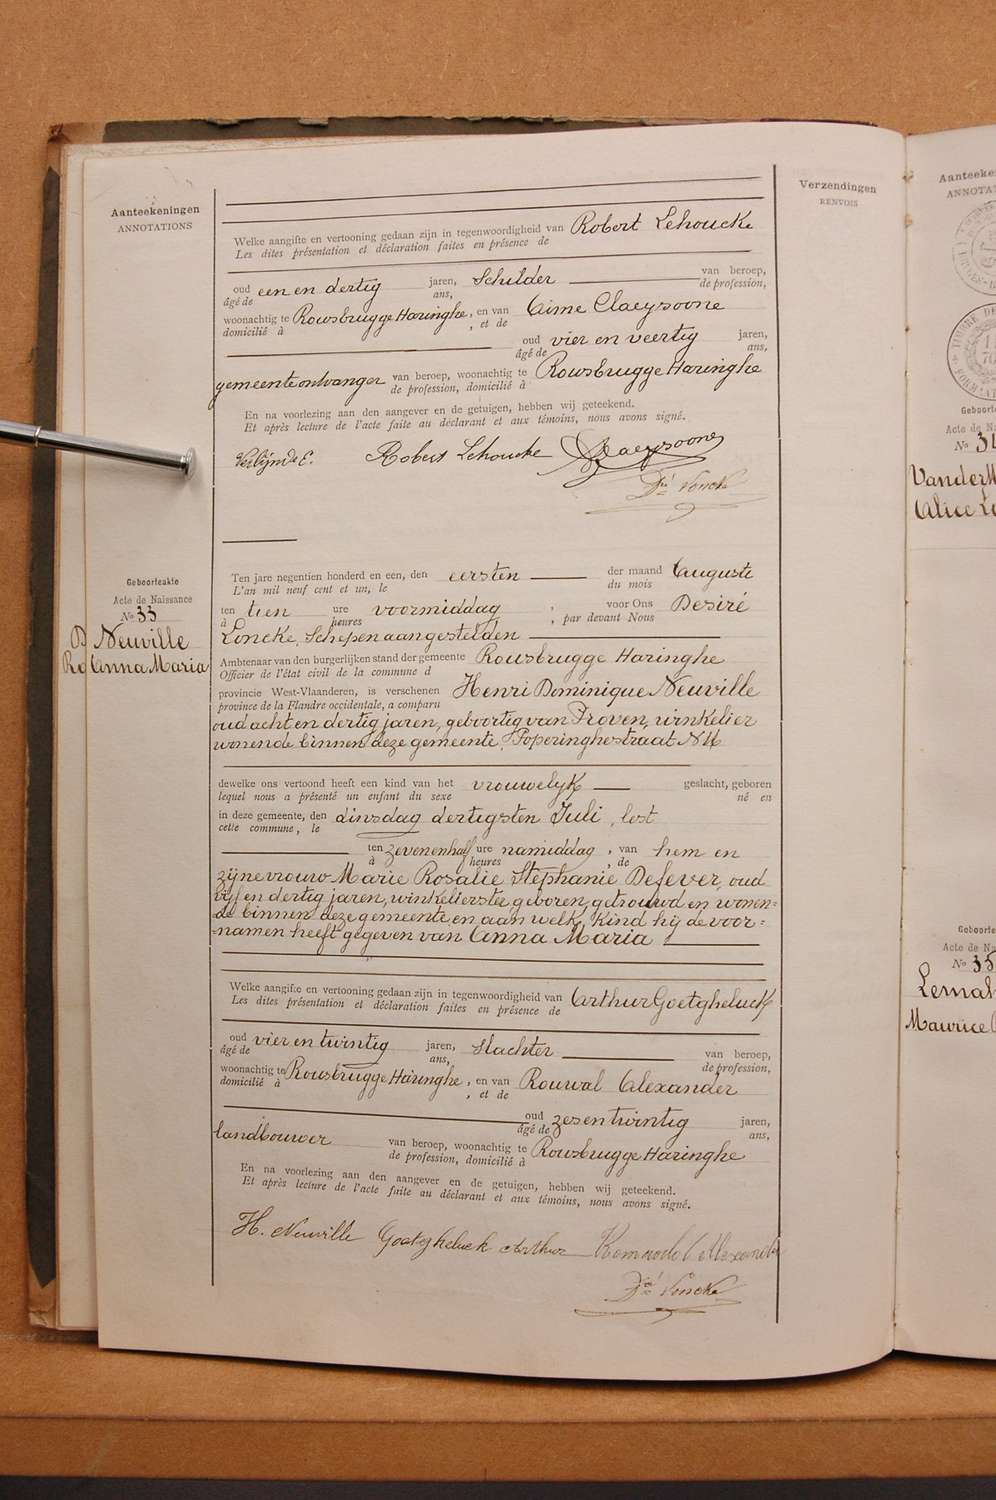 Aanteekeningen
ANNOTATIONS
Verzendingen
RENVOIS
Welke aangifte en vertooning gedaan zijn in tegenwoordigheid van Robert Lehoucke
Les dites présentation et déclaration faites en présence de
oud een en dertig jaren, Schilder van beroep,
âgé de ans, de profession,
woonachtig te Rousbrugge Haringhe, en van Aimé Claeysoone
domicilié à , et de
oud vier en veertig jaren,
âgé de ans,
gemeenteontvanger van beroep, woonachtig te Rousbrugge Haringhe
de profession, domicilié à
En na voorlezing aan den aangever en de getuigen, hebben wij geteekend.
Et après lecture de l'acte faite au déclarant et aux témoins, nous avons signé.
Robert Lehoucke Claeysoone
Dré Voncke
Geboorteakte
Acte de Naissance
No 33
Neuville
Anna Maria
Ten jare negentien honderd en een, den eersten der maand Auguste
L'an mil neuf cent et un, le du mois
ten tien ure voormiddag , voor Ons Desiré
à heures , par devant Nous
Loncke, Schepen aangestelden
Ambtenaar van den burgerlijken stand der gemeente Rousbrugge Haringhe
Officier de l'état civil de la commune d
provincie West-Vlaanderen, is verschenen Henri Dominique Neuville
province de la Flandre occidentale, a comparu
oud acht en dertig jaren, geboortig van Proven, winkelier
wonende binnen deze gemeente, Poperinghestraat
dewelke ons vertoond heeft een kind van het vrouwelyk geslacht, geboren
lequel nous a présenté un enfant du sexe né en
in deze gemeente, den dinsdag dertigsten Juli, lest
cette commune, le
ten zevenenhalf ure namiddag , van hem en
à heures , de
zijne vrouw Marie Rosalie Stephanie Defever, oud
vijf en dertig jaren, winkelierster geboren, getrouwd en wonen=
de binnen deze gemeente, en aan welk kind hij de voor=
=namen heeft gegeven van Anna Maria
Welke aangifte en vertooning gedaan zijn in tegenwoordigheid van Arthur Goetgheluck
Les dites présentation et déclaration faites en présence de
oud vier en twintig jaren, Slachter van beroep,
âgé de ans, de profession,
woonachtig te Rousbrugge Haringhe, en van Rouwal Alexander
domicilié à , et de
oud zes en twintig jaren,
âgé de ans,
landbouwer van beroep, woonachtig te Rousbrugge Haringhe
de profession, domicilié à
En na voorlezing aan den aangever en de getuigen, hebben wij geteekend.
Et après lecture de l'acte faite au déclarant et aux témoins, nous avons signé.
H. Neuville Goetgheluck Arthur
Dré Voncke
Aanteeke
ANNOTA
Geboorte
Acte de Na
No 34
Alice Le
Geboorte
Acte de Na
No 35
Lemah
Maurice